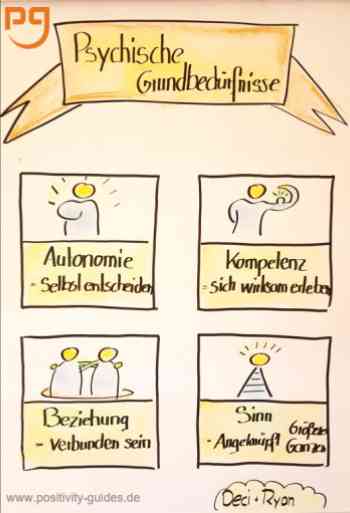 pg
Psychische
Grundbedürfnisse
Autonomie
- Selbst entscheiden
Kompetenz
- sich wirksam erleben
Beziehung
- Verbunden sein
Sinn
- Angeknüpft Größeres
Ganzen
Deci + Ryan
www.positivity-guides.de